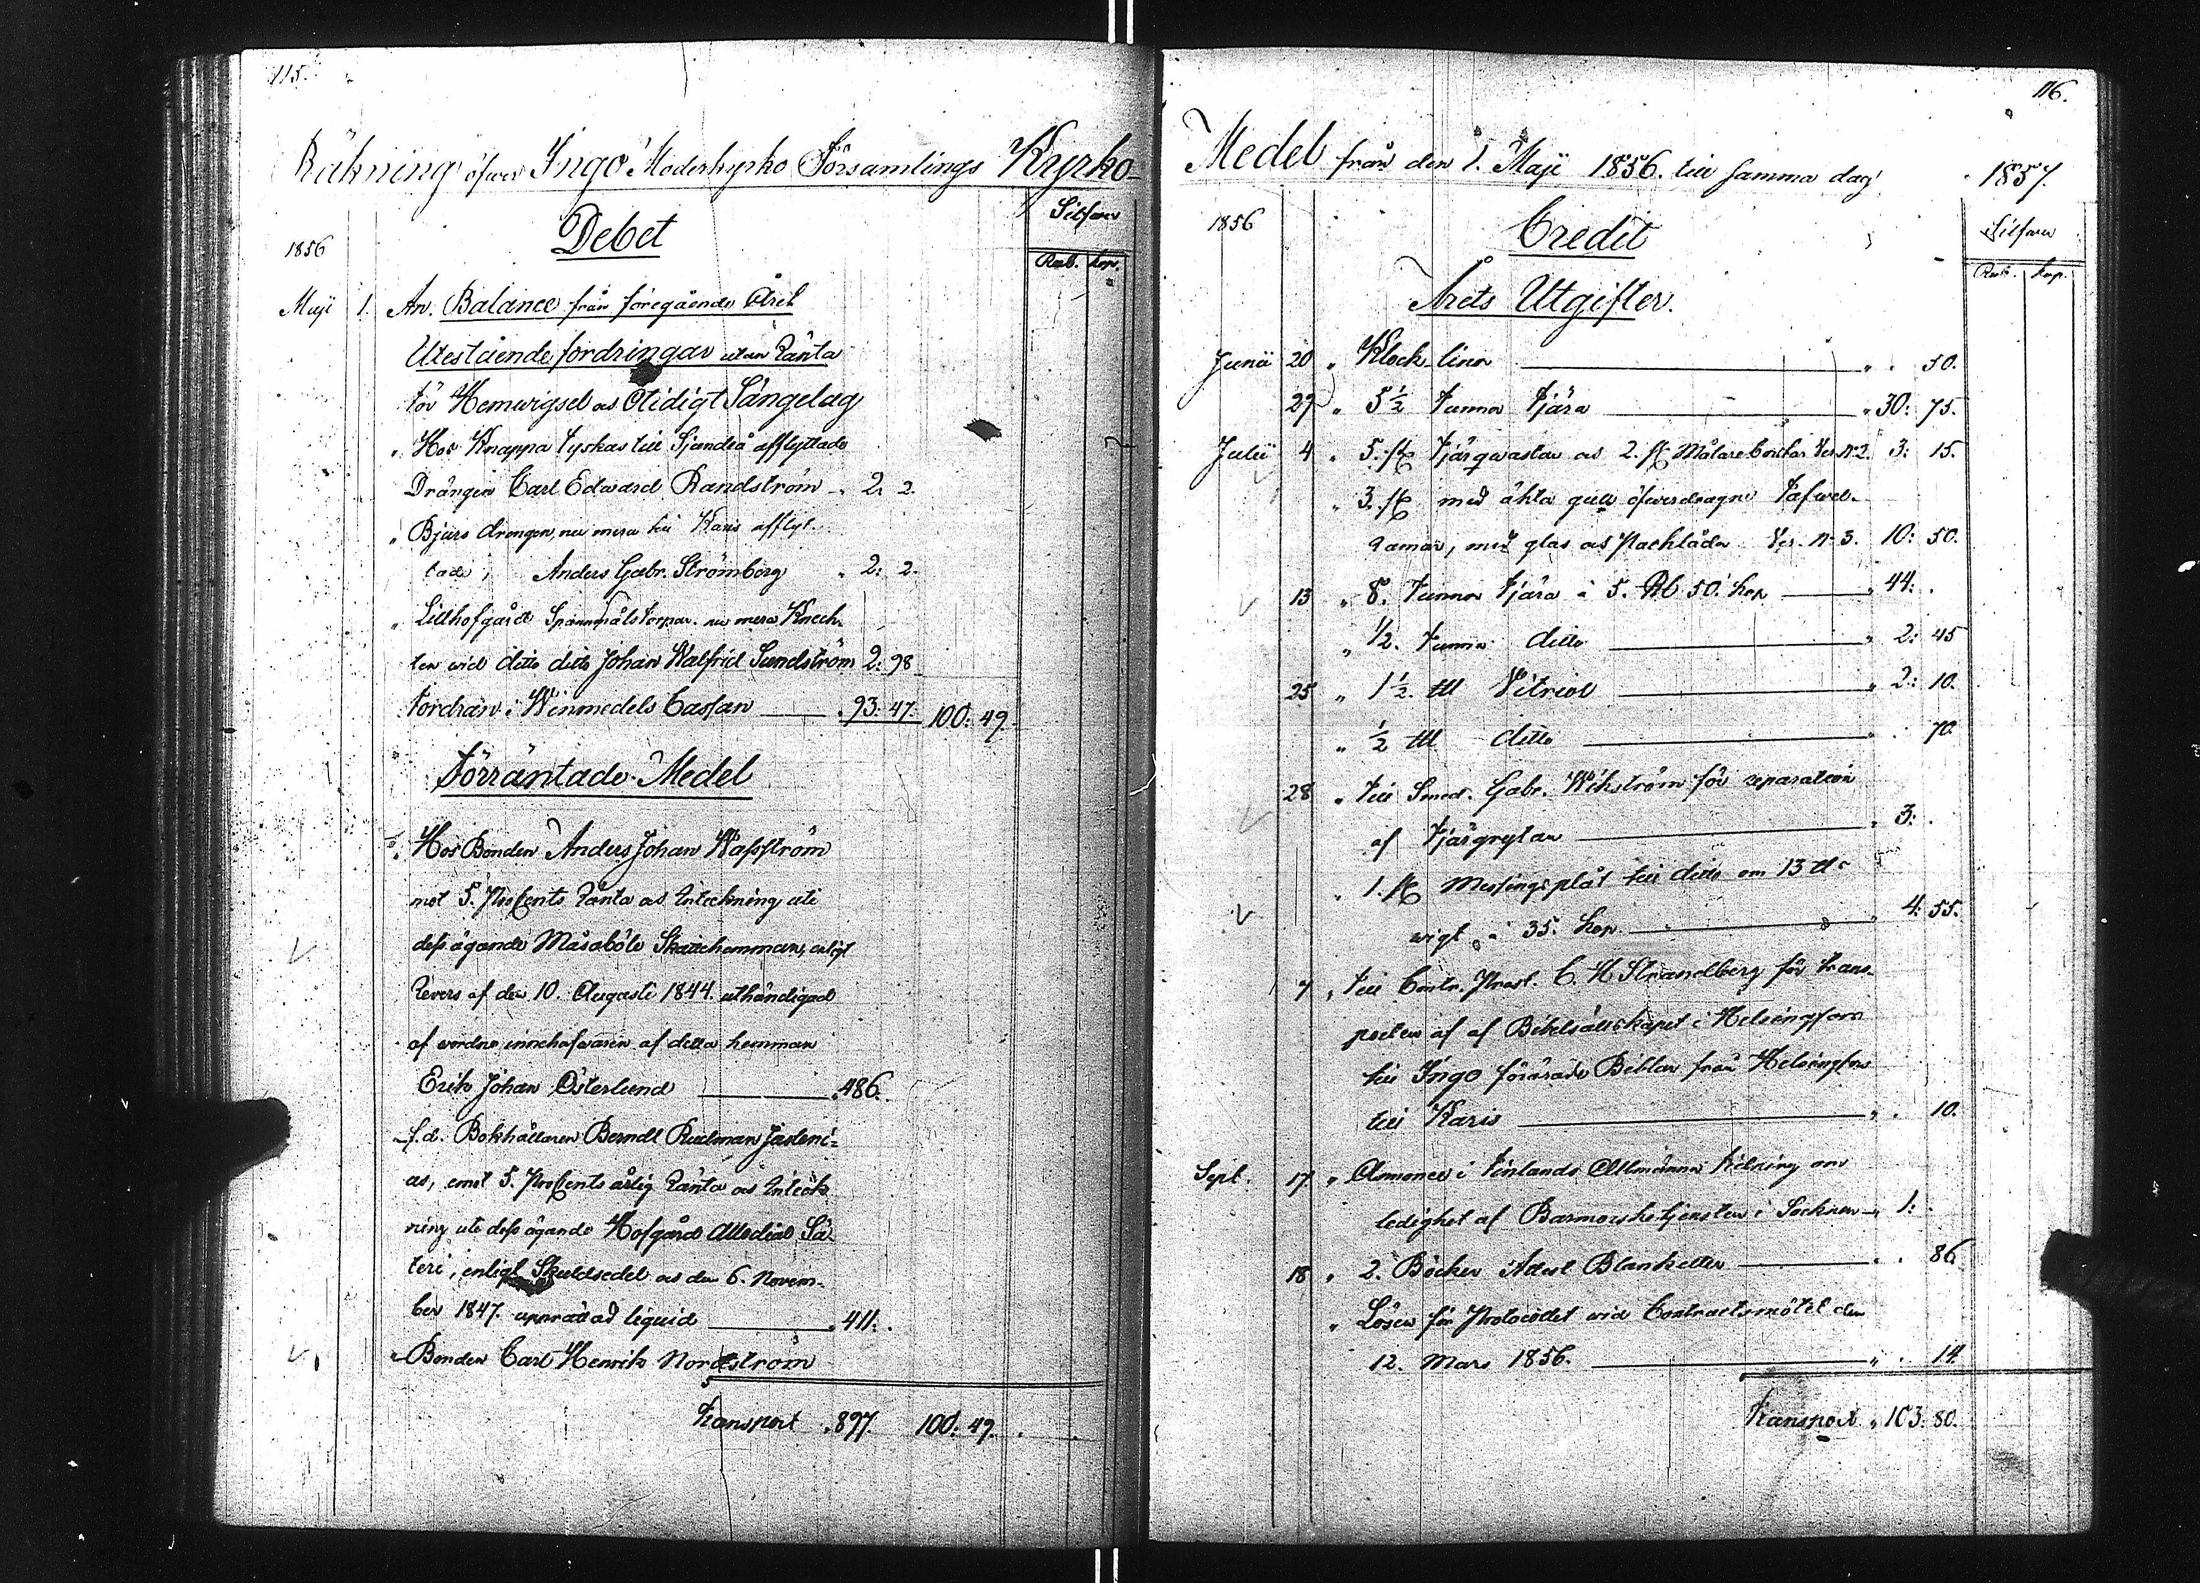 115.
Räkning öfver Ingo Moderkyrko Församlings Kyrko-
Debet
Silfver
Rub. kop.
1856
Maji 1. An. Balance från föregående Året
Utestående fordringar utan Ränta
för Hemvigsel och Otidigt Sängelag
" Hos Knappa Tyskas till Sjundeå afflyttade
Drängen Carl Edward Randström " 2. 2.
" Bjärs drengen, nu mera till Karis afflyt-
tade, Anders Gabr. Strömberg " 2: 2.
" Lillhofgård Spannmåls torpar. nu mera Knech-
ten vid ditto ditto Johan Walfrid Sundström 2: 98
Fordran i Winmedels Cassan " 93: 47. 100: 49.
Förräntade Medel
" Hos Bonden Anders Johan Wassström
mot 5. Procents Ränta och Inteckning uti
dess ägande Måsaböle Skattehemman, enligt
Revers af den 10. Augusti 1844. uthändigad
af innehafvaren af detta hemman
Erik Johan Österlund " 486.
" f.d. Bokhållaren Berndt Rudman
emot 5. Procents årlig Ränta och Inteck-
ning uti dess ägande Hofgård Allodial Sä-
teri, enligt Skuldsedel as den 6. Novem-
ber 1847. upprättad liquid " 411: .
" Bonden Carl Henrik Nordström
Transport " 897. 100: 49.
116.
Medel från den 1. Maji 1856. till samma dag 1857.
1856
Credit
Silfver
Rub. kop.
Årets Utgifter.
Junii 20 " Klock linor " . 50.
27 " 5½ Tunnor Tjära " 30: 75.
Julii 4 " 5. st. Tjärqvastar och 2. st. Målareborstar Ver. N:2. 3: 15.
" 3. st. med äkta gull öfverdragne Tafvel-
ramar, med glas och Packlåda Ver. N:3. 10: 50.
13 " 8. Tunnor Tjära á 5. Rb 50. kop " 44: .
" ½. Tunna ditto " 2: 45
25 " 1½. ℔ Vitriol " 2: 10.
" ½ ℔ ditto " . 70.
28 " till Smed. Gabr. Wikström för reparation
af Tjärgrytan " 3: .
" 1. st. Messingsplåt till ditto om 13 ℔s
vigt á 35. kop. " 4: 55.
7 " till Contr. Prost. C. H. Strandberg för trans-
porten af af Bibelsällskapet i Helsingfors
till Ingo förärade Biblar från Helsingfors
till Karis " . 10.
Sept. 17 " Annonce i Finlands Allmänna Tidning om
ledighet af Barnmorsketjensten i Socknen " 1: .
18 " 2. Böcker Attest Blanketter " . 86
" Lösen för Protocollet vid Contractsmötet den
12. Mars 1856. " . 14.
Transport " 103: 80.